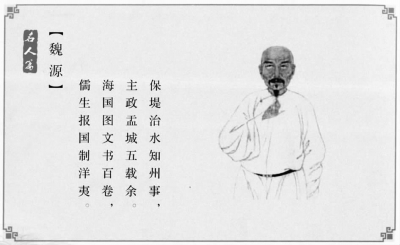 名人篇
【魏源】
保堤治水知州事，
主政孟城五载余。
海国图文书百卷，
儒生报国制洋夷。